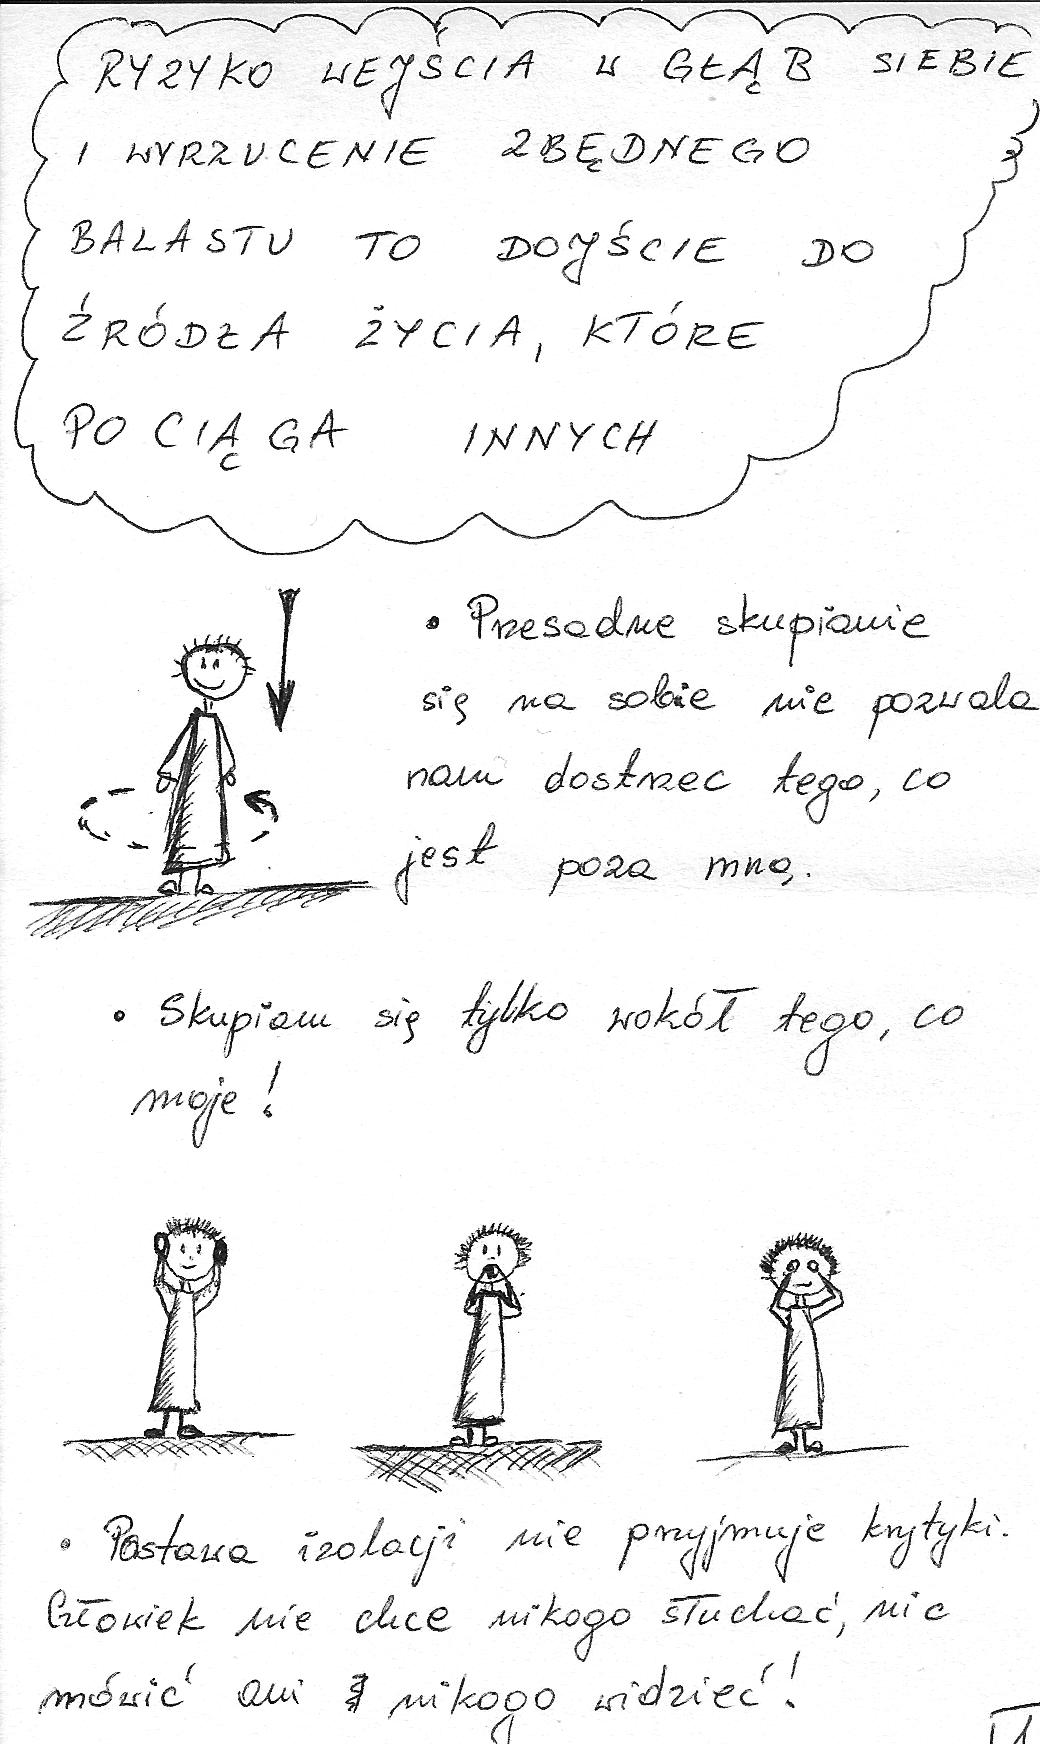 RYZYKO WEJŚCIA W GŁĄB SIEBIE
I WYRZUCENIE ZBĘDNEGO
BALASTU TO DOJŚCIE DO
ŹRÓDŁA ŻYCIA, KTÓRE
POCIĄGA INNYCH
• Przesadne skupianie
się na sobie nie pozwala
nam dostrzec tego, co
jest poza mną.
• Skupiam się tylko wokół tego, co
moje!
• Postawa izolacji nie przyjmuje krytyki.
Człowiek nie chce nikogo słuchać, nic
mówić ani nikogo widzieć!